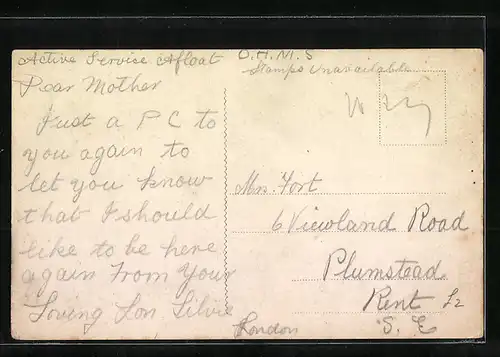 Active Service Afloat
O.H.M.S
Stamps Unavailable
Dear Mother
Just a P C to
you again to
let you know
that I should
like to be here
again From Your
Loving Son
Mrs. Fort
6 Viewland Road
Plumstead
Kent
S. E
London